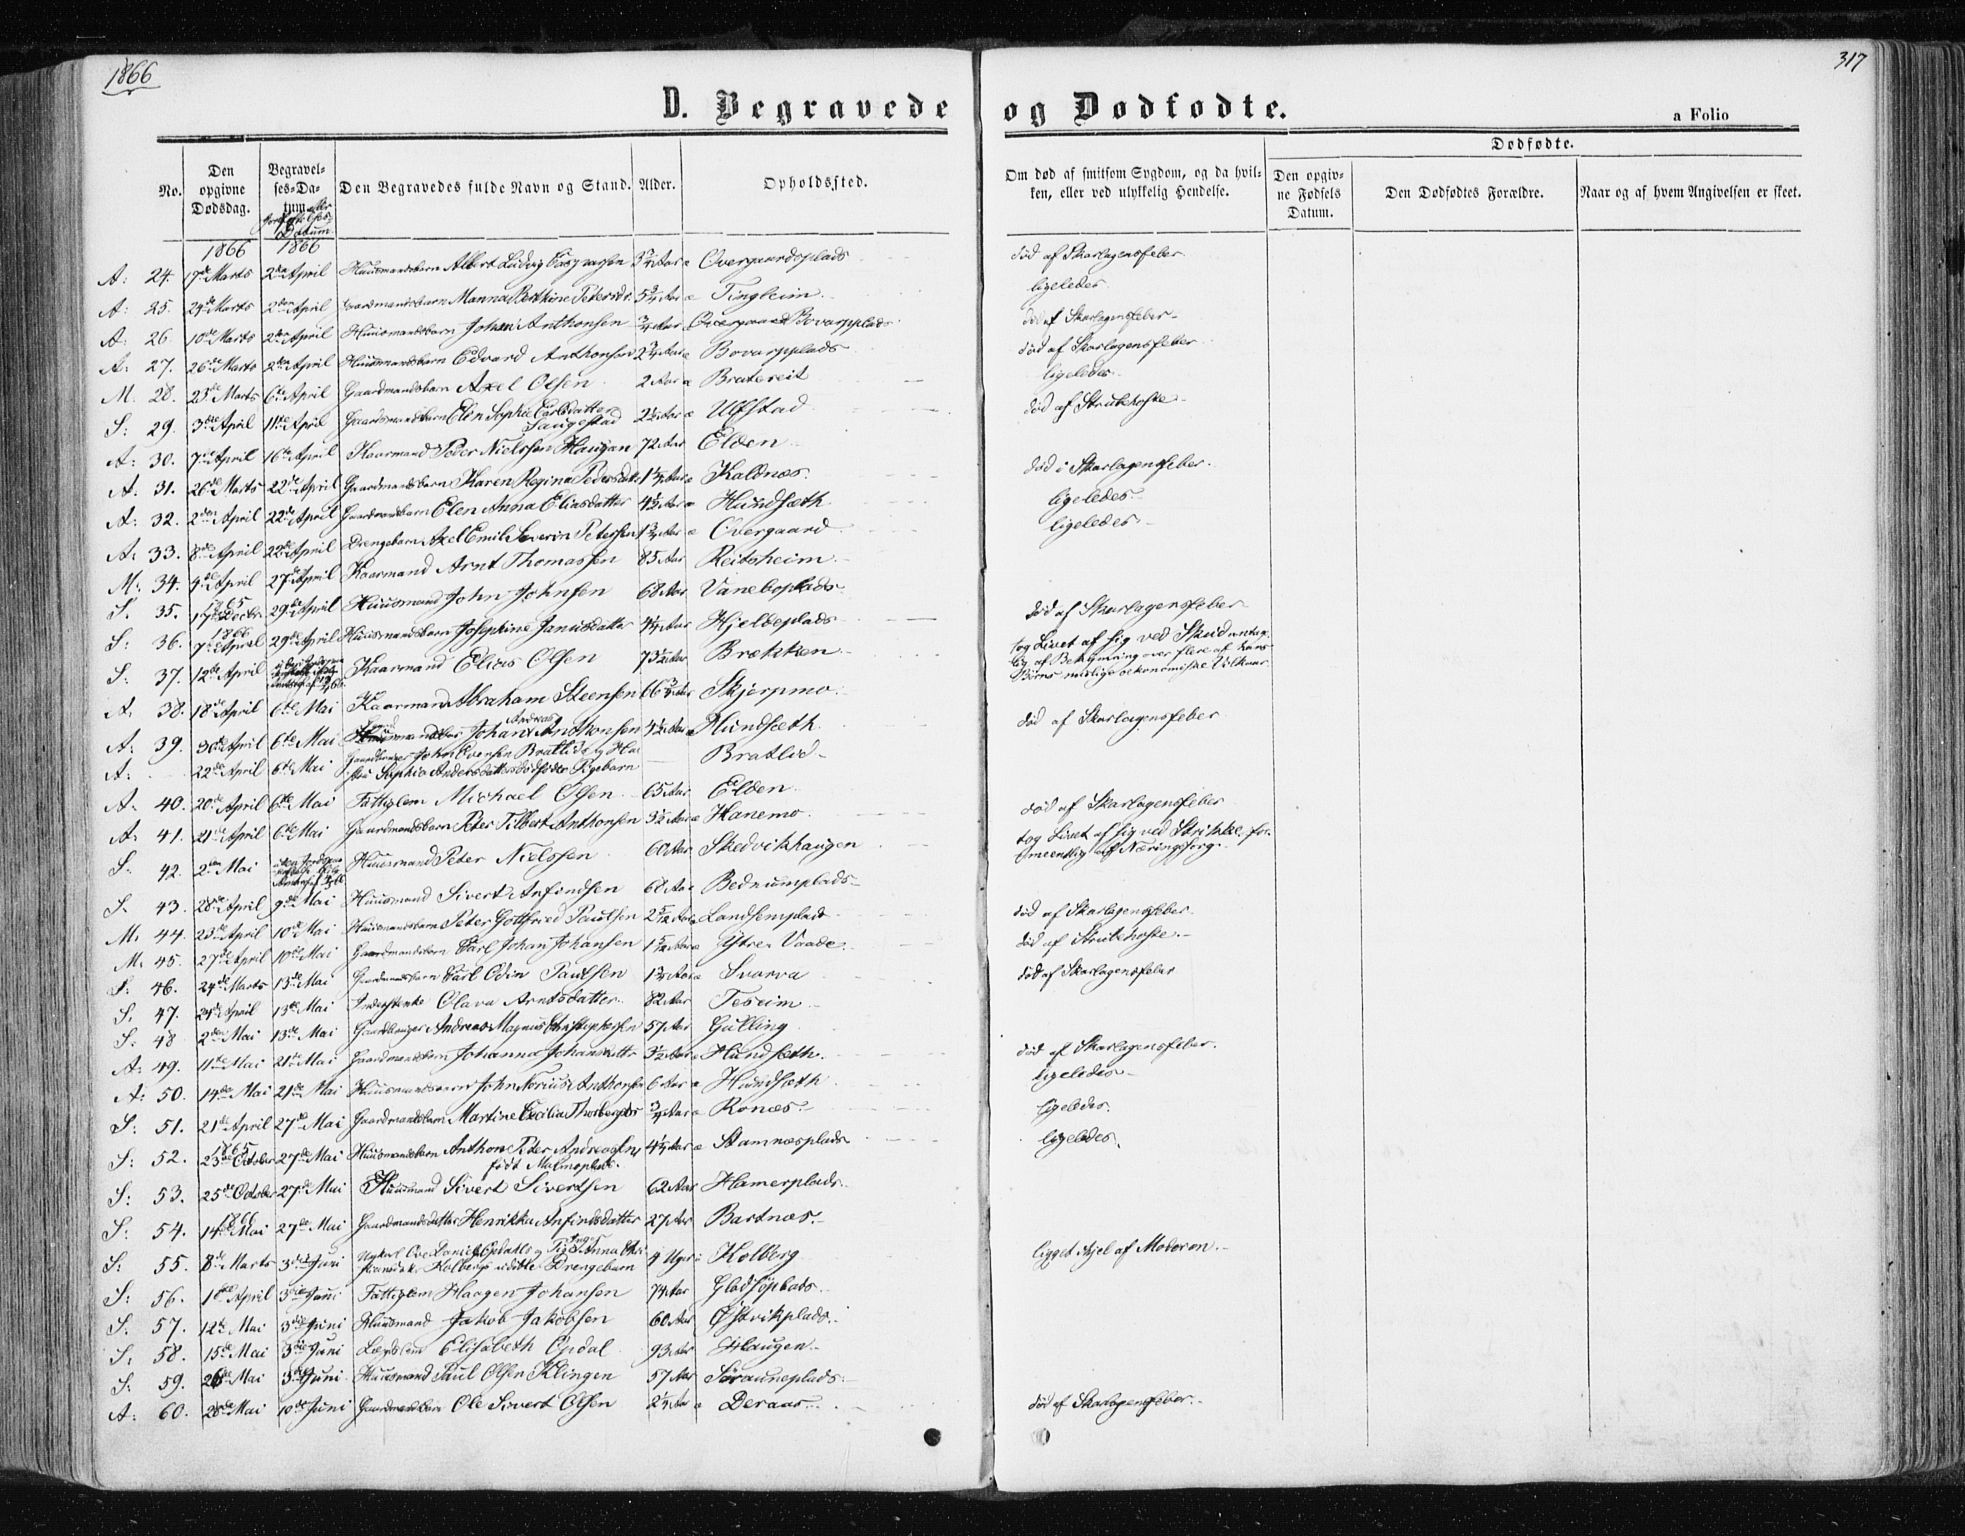 1866
317
D. Begravede og Dødfødte.
a Folio
No.
Den opgivne Dødsdag.
Begravelses-Datum
Den Begravedes fulde Navn og Stand.
Alder.
Opholdssted.
Om død af smitsom Sygdom, og da hvilken, eller ved ulykkelig Hendelse.
Dødfødte.
Den opgivne Fødsels Datum.
Den Dødfødtes Forældre.
Naar og af hvem Angivelsen er skeet.
1866 1866
A: 24. 17de Marts 2den April Huusmandsbarn Albert Ludvig Overgaardsplads død af Skarlagensfeber
A: 25. 24de Marts 2den April Gaardmandsbarn Tingheim ligeledes
A: 26. 10de Marts 2den April Huusmandsbarn Johan Anthonsen 3/4 Aar Bovarpplads død af Skarlagensfeber
A: 27. 26de Marts 2den April Huusmandsbarn Edvard Anthonsen Bovarpplads død af Skarlagensfeber
M. 28. 25de Marts 6te April Gaardmandsbarn Axel Olsen 2 Aar Bratereit ligeledes
S: 29. 3die April 11te April Gaardmandsbarn Elen Sophie Carlsdatter Ulfstad død af Strubehoste
A: 30. 7de April 16de April Kaarmand Peder Nielssen Haugan 72 Aar Elden
A: 31. 26de Marts 22de April Gaardmandsbarn Karen Regina Pedersdatter Kaldnæs død i Skarlagensfeber.
A: 32. 2den April 22de April Gaardmandsbarn Elen Anna Eliasdatter 4 1/2 Aar Hundsæth ligeledes
A: 33. 8de April 22de April Drengebarn Axel Emil Severin Petersen Overgaard ligeledes
M: 34. 4de April 27de April Kaarmand Arnt Thomassen 85 Aar Reitsheim
S. 35. 1865 17de Decbr. 29de April Huusmand John Johnsen 68 Aar Vaneboplads
S: 36. 1866 7de April 29de April Huusmandsbarn Josephine Janusdatter Hjeldeplads død af Skarlagensfeber
S: 37. 12te April Kaarmand Elias Olsen 73 1/2 Aar Brækken tog Livet af sig ved Skud antagelig af Bekymring over flere af hans Børns mislige oekonomiske Vilkaar
A. 38. 18de April 6te Mai Kaarmand Abraham Steensen Skjerpmo
A: 39. 30te April 6te Mai Johan Andreas Anthonsen 4 1/2 Aar Hundsæth død af Skarlagensfeber
A: 22de April 6te Mai Gaardbruger John Evensen Bratlids og Hustru Sophia Andersdatters dødfødte Pigebarn Bratlid
A. 40. 20de April 6te Mai Fattiglem Michael Olsen 65 Aar Elden
A: 41. 21de April 6te Mai Gaardmandsbarn Peter Anthonsen 3 1/2 Aar Hanemo død af Skarlagensfeber
S. 42. 2den Mai Huusmand Peter Nielssen 60 Aar Skedvikhaugen tog Livet af sig ved Strikke formeentlig af Næringssorg.
S. 43. 28de April 9de Mai Huusmand Sivert Anfindsen Bednumplads
M. 44. 23de April 10de Mai Huusmandsbarn Peter Gottfried Paulsen 2 5/12 Aar Landsemplads død af Skarlagensfeber
M. 45. 27de April 10de Mai Gaardmandsbarn Carl Johan Johansen Ystre Vaade død af Strubehoste
S: 46. 24de Marts 13de Mai Gaardmandsbarn Carl Odin Paulsen Svarva død af Skarlagensfeber
S. 47. 24de April 13de Mai Inderstenke Olava Arntsdatter 82 Aar
S: 48 2den Mai 13de Mai Gaardbruger Andreas Magnus Christophersen 57 Aar Gulling
A: 49. 11te Mai 21de Mai Gaardmandsbarn Johanna Johansdatter 3 1/2 Aar Hundsæth. død af Skarlagensfeber.
A: 50. 14de Mai 21de Mai John Norius Anthonsen 6 Aar Hundsæth ligeledes
S: 51. 21de April 27de Mai Gaardmandsbarn Martine Cecilia 3/4 Aar Ronæs ligeledes
S: 52. 1865 23de October 27de Mai Huusmandsbarn Anthon Peter Andreassen født Malmoplads Stamnesplads ligeledes
S: 53. 25de October 27de Mai Huusmand Sivert Sivertsen 62 Aar Hamerplads
S: 54. 1866 14de Mai 27de Mai Gaardmandsdatter Henrikka Anfindsdatter 27 Aar Bartnæs
S: 55. 8de Marts 3die Juni Ungkarl Ove Daniel Opdahls og Pige Inger Anna Holbergs uægte Drengebarn 4 Uger Holberg ligget ihjel af Moderen
S: 56. 1ste April 3die Juni Fattiglem Haagen Johansen 74 Aar Gladsøplads
S. 57. 12te Mai 3die Juni Huusmand Jakob Jakobsen 60 Aar Østvikplads
S. 58. 15de Mai 3die Juni Lægdslem Elisabeth Opdal 93 Aar Haugen
S. 59. 26de Mai 3die Juni Huusmand Paul Olsen Klingen 57 Aar
A: 60. 28de Mai 10de Juni Gaardmandsbarn Ole Sivert Olsen 2 1/4 Aar Deraas død af Skarlagensfeber